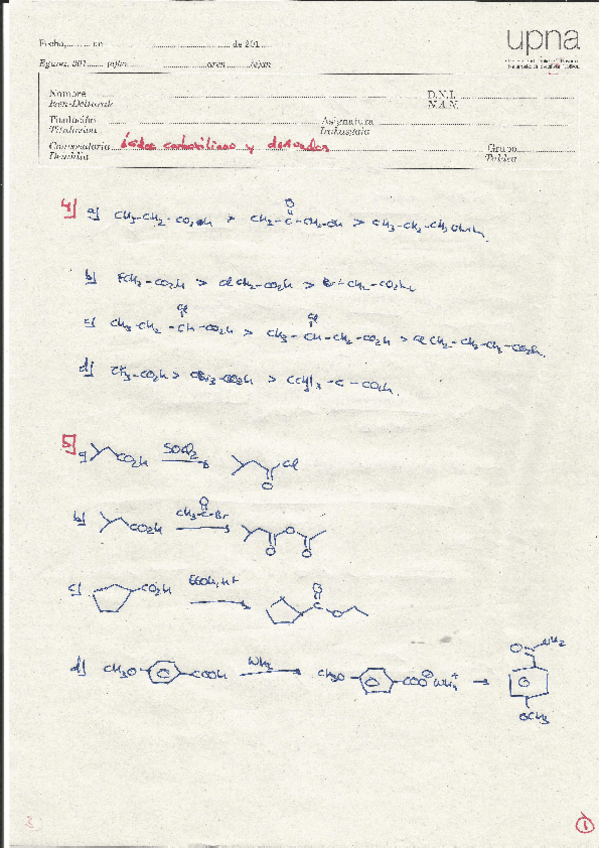 upna
Fecha, de 201
Eguna, 201
Nombre D.N.I.
Izen-Deiturak N.A.N.
Titulación Asignatura
Titulazioa Irakasgaia
Convocatoria ácidos carboxílicos y derivados Grupo
Deialdia Taldea
4) a) CH3-CH2-CO2H > CH3-C-CH2-OH > CH3-CH2-CH2OH
O
b) FCH2-CO2H > ClCH2-CO2H > Br-CH2-CO2H
Cl Cl
c) CH3-CH2-CH-CO2H > CH3-CH-CH2-CO2H > ClCH2-CH2-CH2-CO2H
d) CF3-CO2H > CBr3-CO2H > -C-CO2H
5) a) CO2H SOCl2 Cl
O
b) CO2H CH3-C-Br O
O O O
c) CO2H EtOH, H+ O
C O
d) CH3O COOH NH3 CH3O COO⊖ NH4+ O NH2
OCH3
1